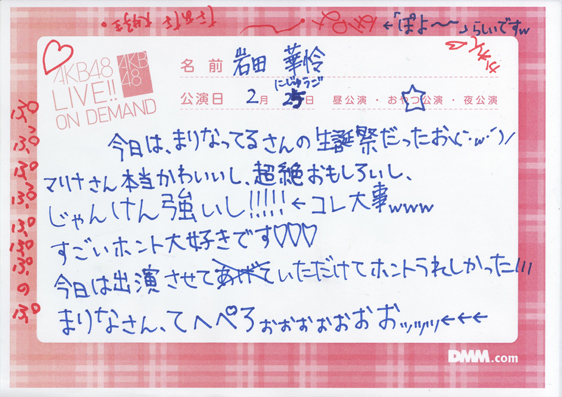 ←「ぽよ〜〜」らしいですw
AKB48
LIVE!!
ON DEMAND
AKB
48
名前 岩田 華怜
にじゅうご
公演日 2月 25日 昼公演・おやつ公演・夜公演
今日は、まりなってるさんの生誕祭だったお\(´･ω･`)/
マリナさん本当かわいいし、超絶おもしろいし、
じゃんけん強いし!!!!!←コレ大事www
すごいホント大好きです♡♡♡
今日は出演させていただけてホントうれしかった!!!
まりなさん、てへぺろぉぉぉぉぉぉぉッッッ←←←
DMM.com